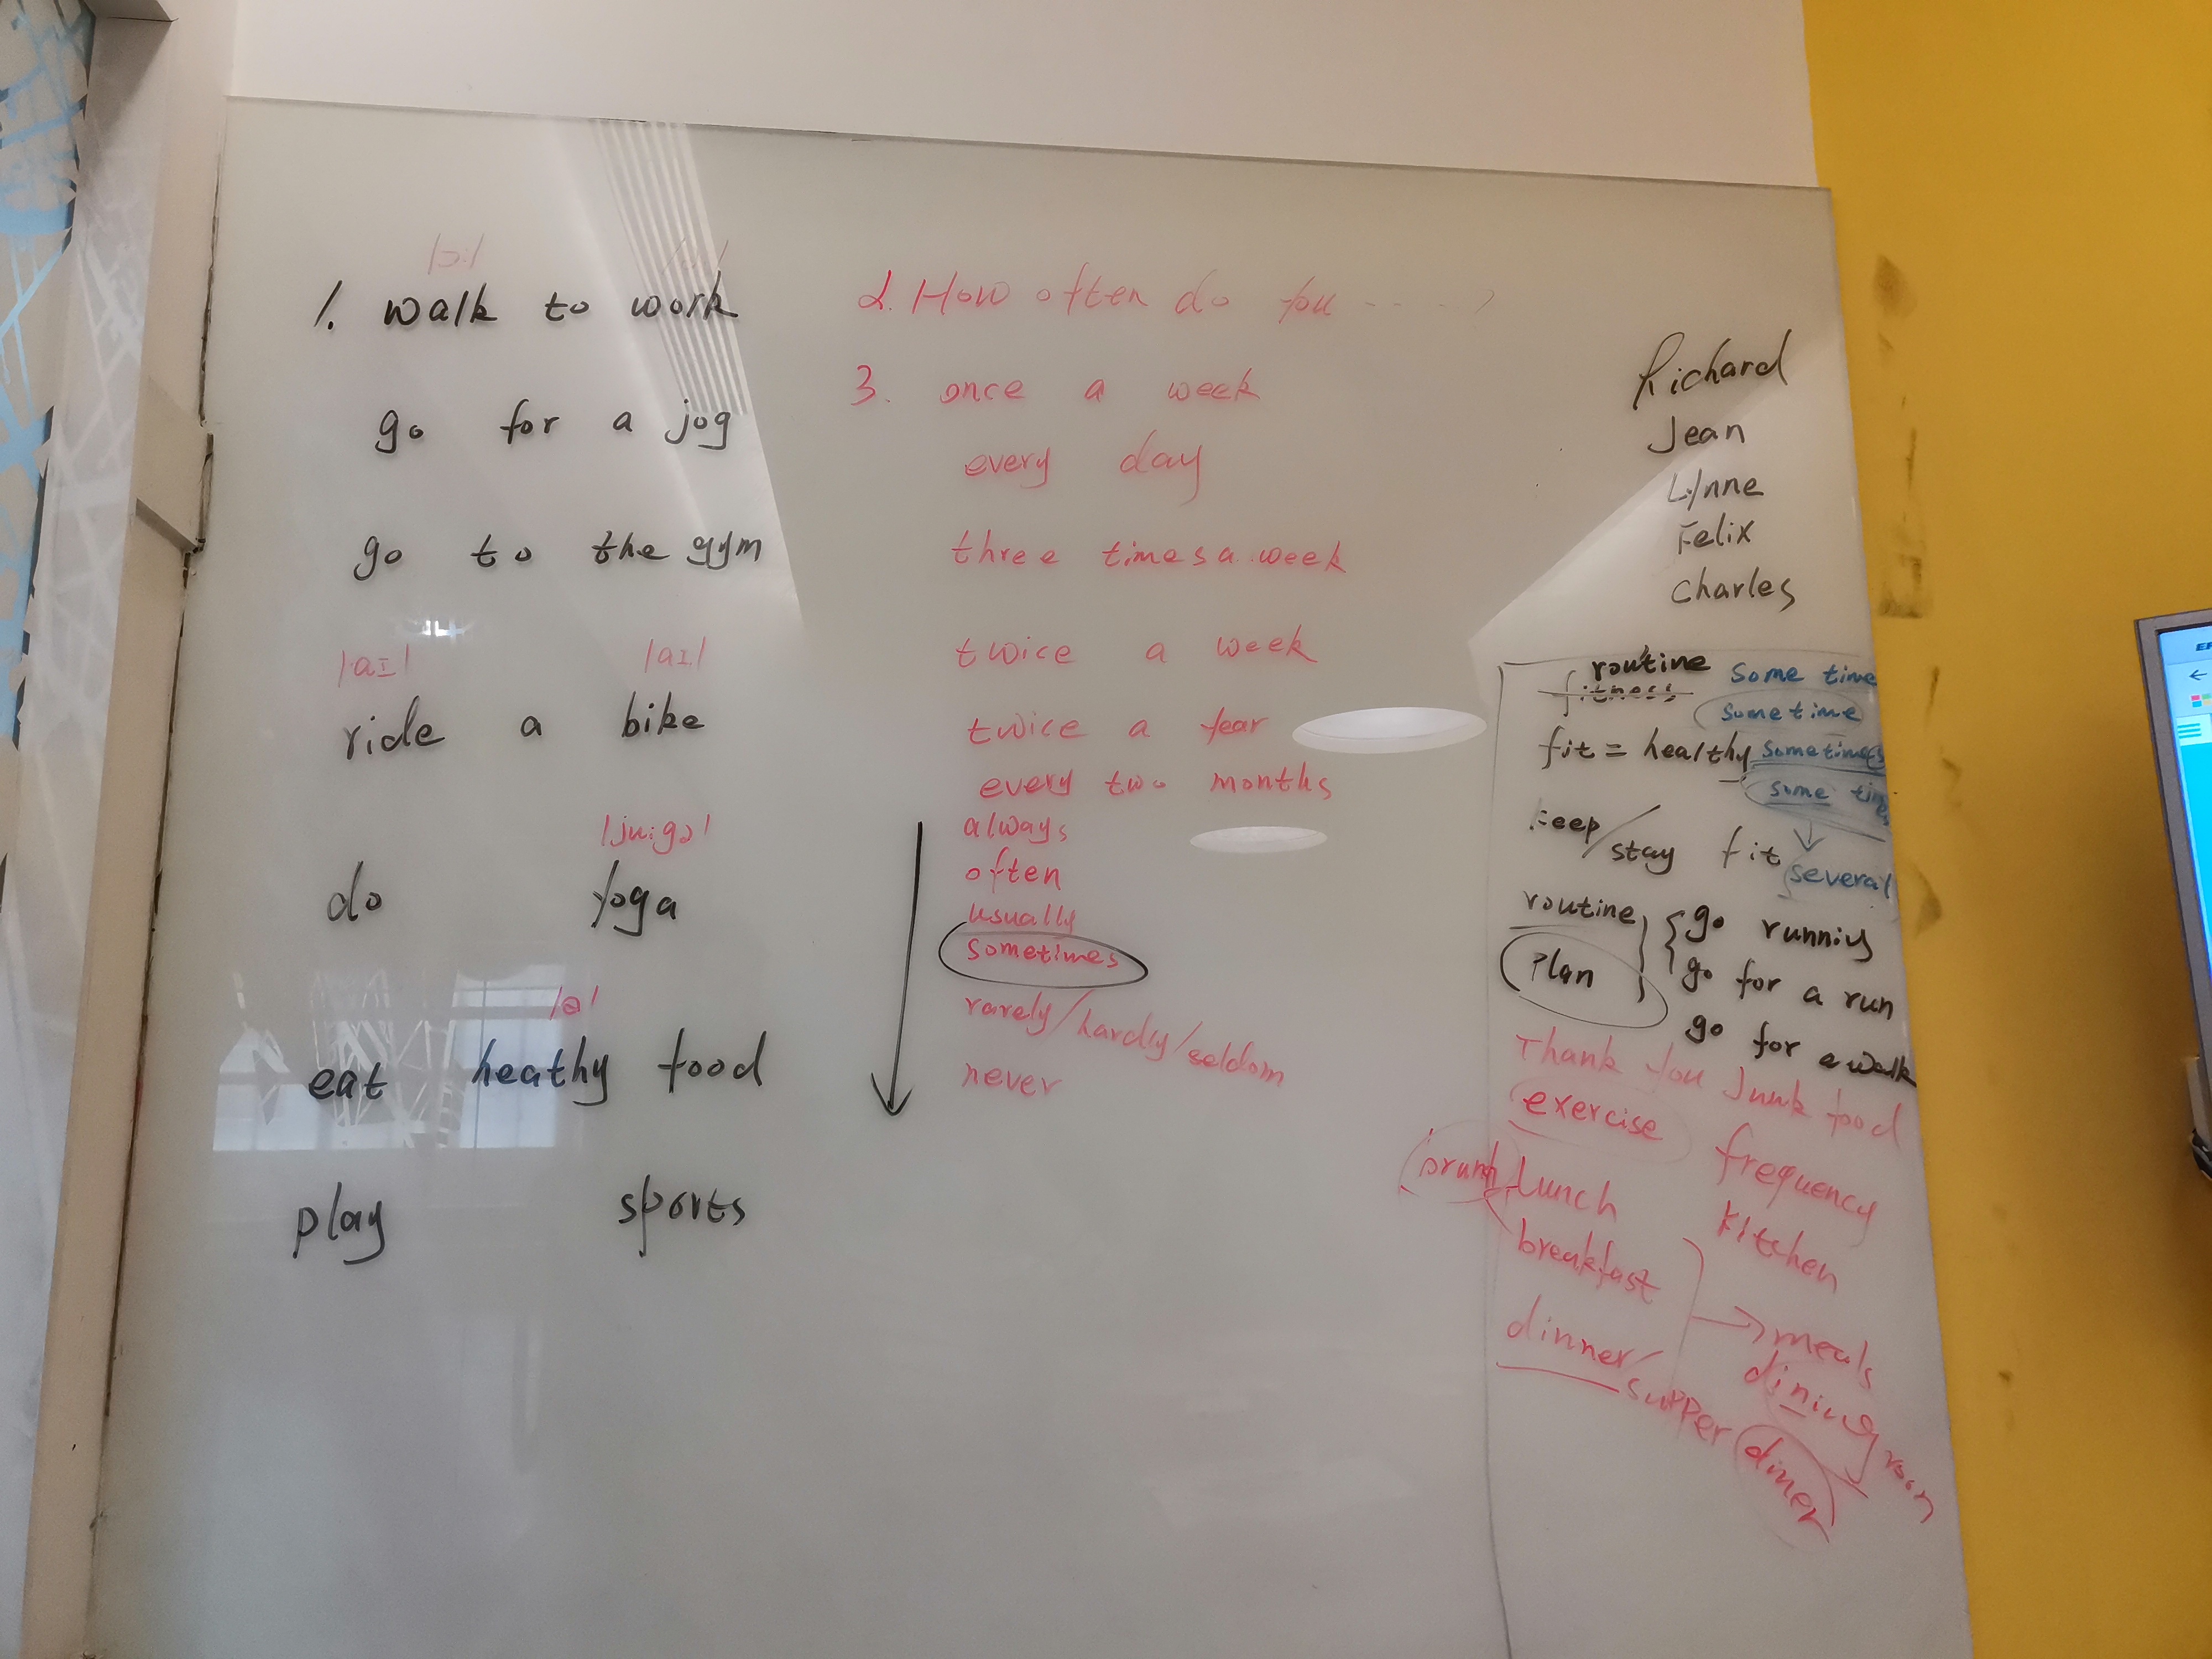 /ɔ:/
1. walk to work
go for a jog
go to the gym
/aɪ/ /aɪ/
ride a bike
/ju:gə/
do yoga
/θ/
eat heathy food
play sports
2. How often do you ----- ?
3. once a week
every day
three times a week
twice a week
twice a year
every two months
always
often
usually
sometimes
rarely/hardly/seldom
never
Richard
Jean
Lynne
Felix
Charles
routine
fitness
some time
sometime
fit = healthy
sometimes
some times
keep/stay fit
several
routine
plan
go running
go for a run
go for a walk
Thank you
Junk food
exercise
frequency
brunch
Lunch
kitchen
breakfast
dinner/supper
meals
dining room
diner